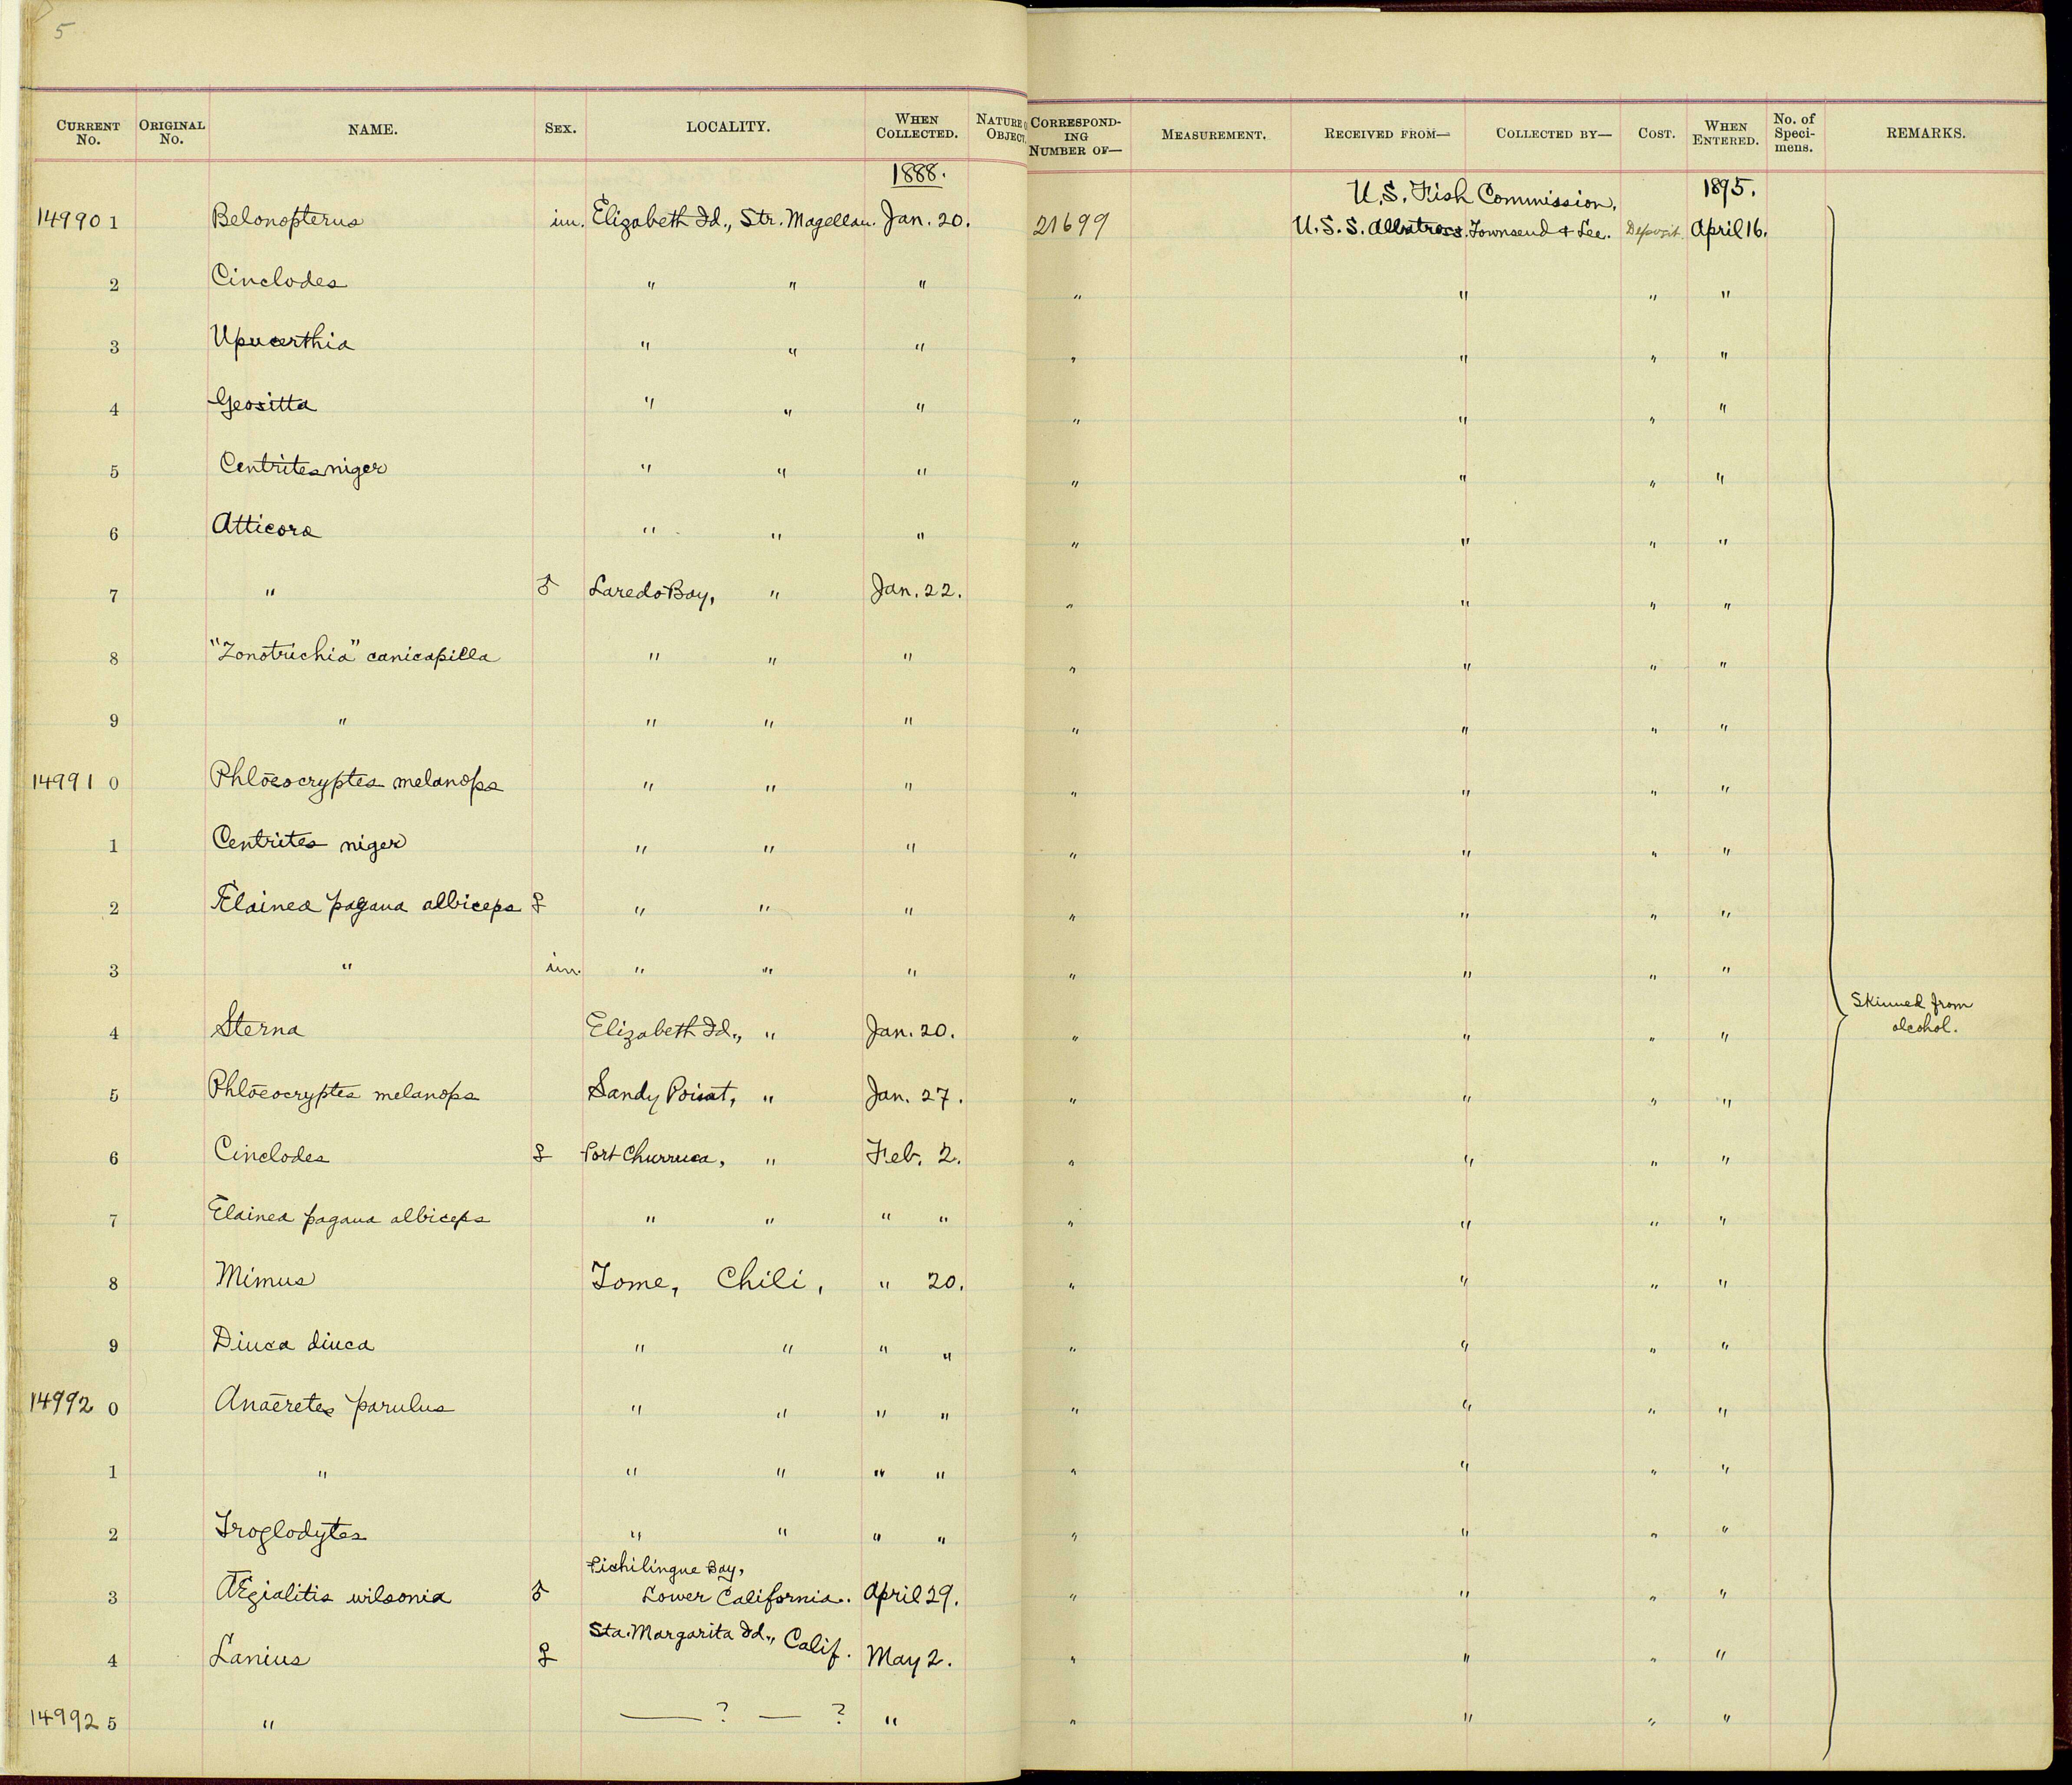 5
CURRENT No. ORIGINAL No. NAME. SEX. LOCALITY. WHEN COLLECTED. NATURE O OBJECT. CORRESPOND-ING NUMBER OF— MEASUREMENT. RECEIVED FROM— COLLECTED BY— COST. WHEN ENTERED. No. of Speci-mens. REMARKS.
1888. U.S. Fish Commission, 1895.
14990 1 Belonopterus im. Elizabeth Id., Str. Magellan. Jan. 20. 21699 U.S.S. Albatross. Townsend & Lee. Deposit April 16.
2 Cinclodes " " " " " " "
3 Upucerthia " " " " " " "
4 Geositta " " " " " " "
5 Centrites niger " " " " " " "
6 Atticora " " " " " " "
7 " ♂ Laredo Bay, " Jan. 22. " " " "
8 "Zonotrichia" canicapilla " " " " " " "
9 " " " " " " " "
14991 0 Phlœocryptes melanops " " " " " " "
1 Centrites niger " " " " " " "
2 Elainea pagana albiceps ♀ " " " " " " "
3 " im. " " " " " " "
Skinned from
4 Sterna Elizabeth Id., " Jan. 20. " " " " alcohol.
5 Phlœocryptes melanops Sandy Point, " Jan. 27. " " " "
6 Cinclodes ♀ Port Churruca, " Feb. 2. " " " "
7 Elainea pagana albiceps " " " " " " " "
8 Mimus Tome, Chili, " 20. " " " "
9 Diuca diuca " " " " " " " "
14992 0 Anæretes parulus " " " " " " " "
1 " " " " " " " " "
2 Troglodytes " " " " " " " "
Pichilingue Bay,
3 Ægialitis wilsonia ♂ Lower California. April 29. " " " "
Sta. Margarita Id., Calif.
4 Lanius ♀ May 2. " " " "
14992 5 " — ? — ? " " " " "